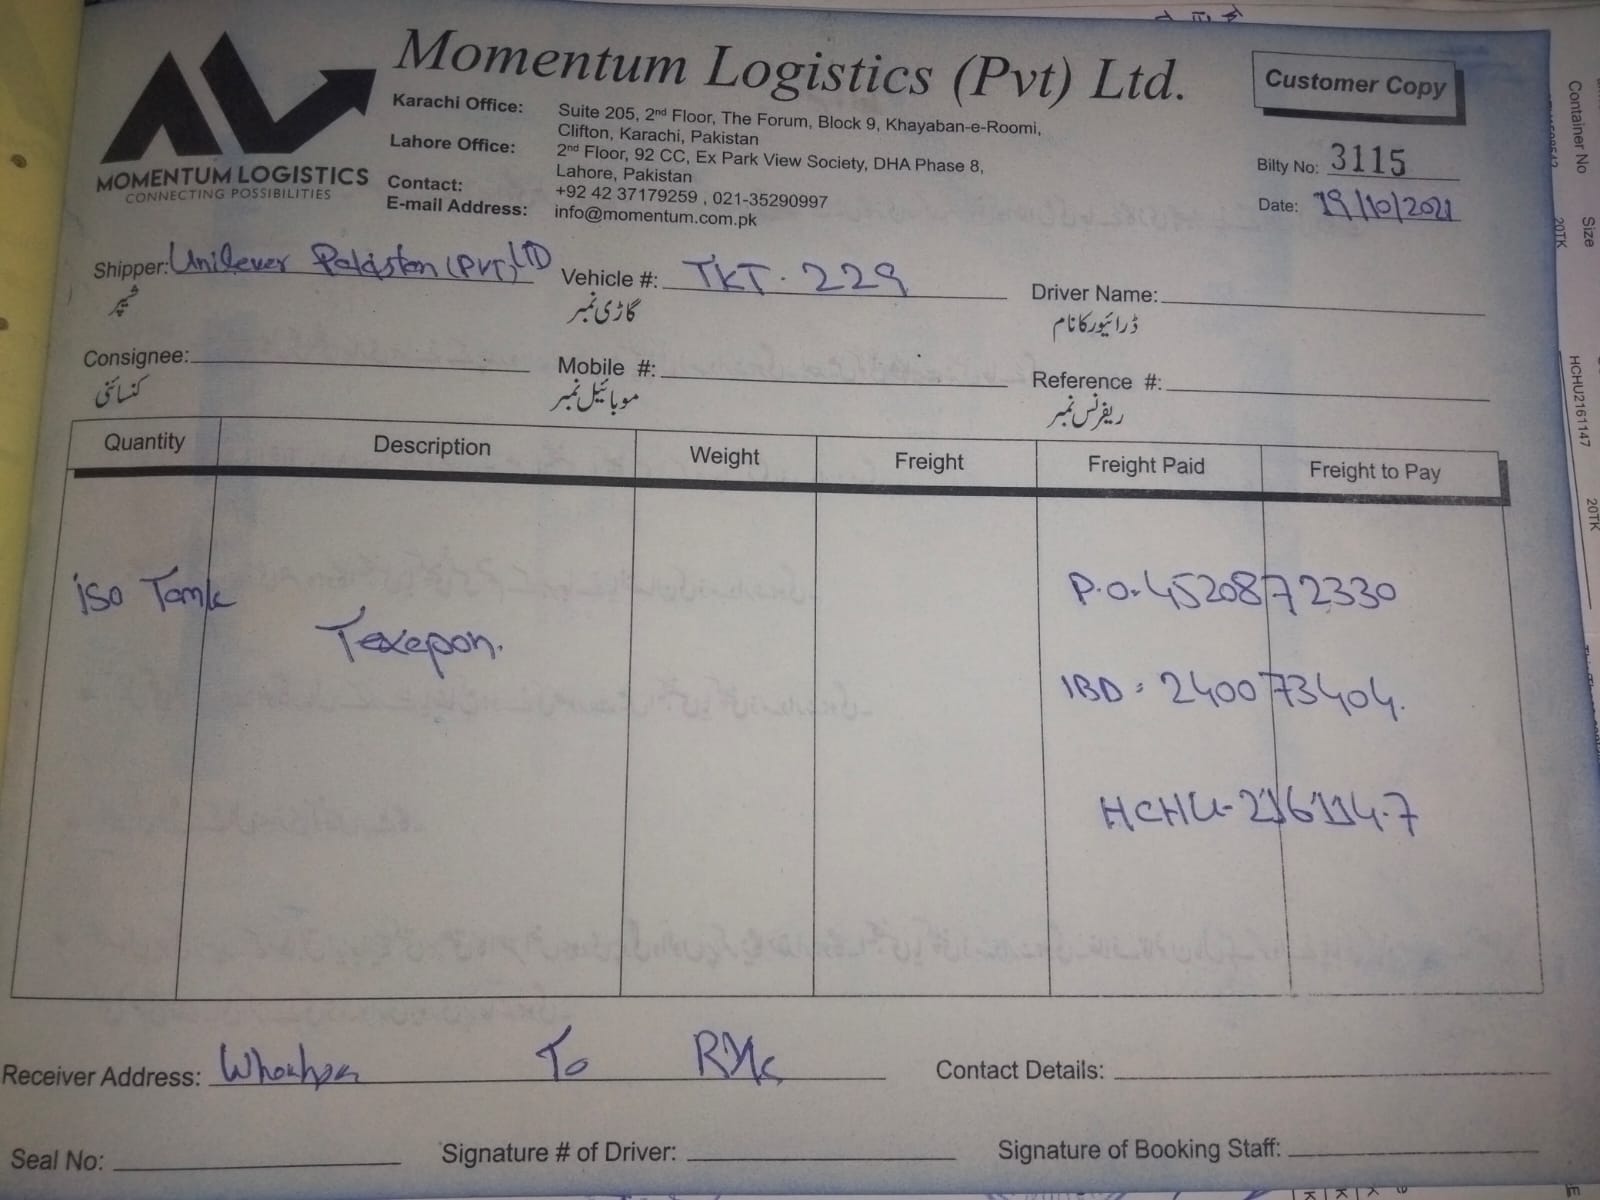 Momentum Logistics (Pvt) Ltd.
Customer Copy
MOMENTUM LOGISTICS
CONNECTING POSSIBILITIES
Karachi Office: Suite 205, 2nd Floor, The Forum, Block 9, Khayaban-e-Roomi,
Clifton, Karachi, Pakistan
Lahore Office: 2nd Floor, 92 CC, Ex Park View Society, DHA Phase 8,
Lahore, Pakistan
Contact: +92 42 37179259 , 021-35290997
E-mail Address: info@momentum.com.pk
Bilty No: 3115
Date: 19/10/2021
Shipper: Unilever Pakistan (PVT) LTD Vehicle #: TKT. 229 Driver Name:
شپر گاڑی نمبر ڈرائیور کا نام
Consignee: Mobile #: Reference #:
کنسائنی موبائیل نمبر ریفرنس نمبر
Quantity Description Weight Freight Freight Paid Freight to Pay
iso Tank P.O. 4520872330
Texepon.
IBD: 240073404.
HCHU-216114-7
Receiver Address: To Contact Details:
Seal No: Signature # of Driver: Signature of Booking Staff:
Container No Size
20TK
HCHU2161147 20TK